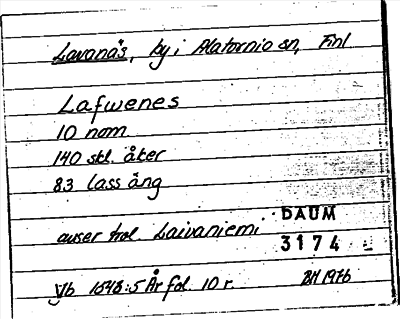 Lavanäs, by i Alatornio sn, Finl
Lafwenes
10 nom
140 skl. åker
83 lass äng
avser trol. Laivaniemi
DAUM
3174
Vb 1648:5 År fol. 10 r.
BH 1976